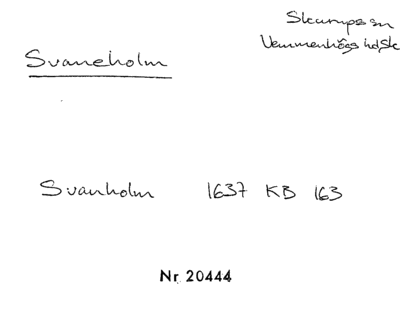 Skurups sn
Vemmenhögs hd Sk
Svaneholm
Svanholm 1637 KB 163
Nr 20444